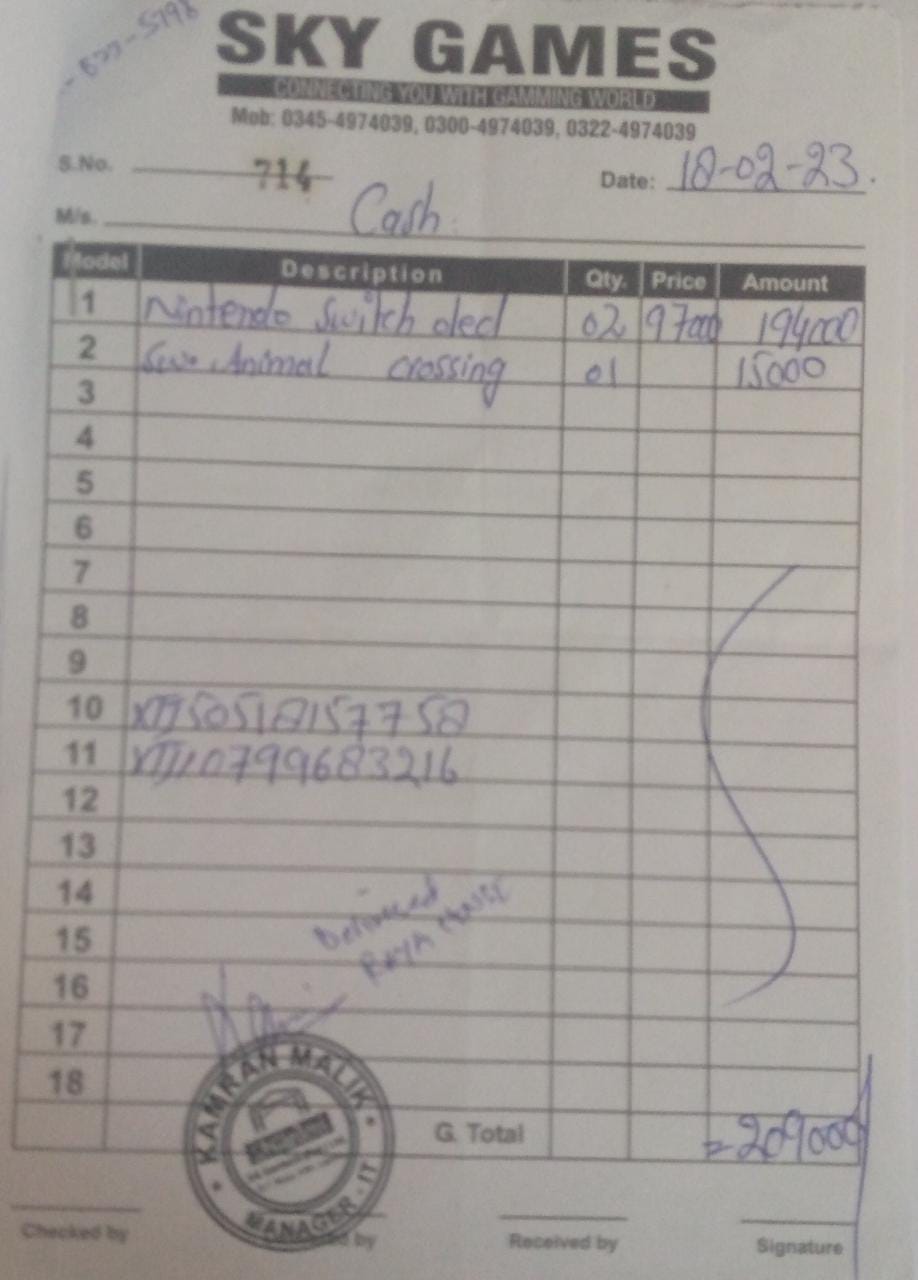 SKY GAMES
CONNECTING YOU WITH GAMMING WORLD
Mob: 0345-4974039, 0300-4974039, 0322-4974039
S.No. 714 Date: 18-02-23.
M/s. Cash
Model Description Qty. Price Amount
1 Nintendo Switch oled 02 97000 194000
2 Animal crossing 01 15000
3
4
5
6
7
8
9
10 XTJ50518157758
11 XTJ10799683216
12
13
14
15
16
17
18
Delivered
House
KAMRAN MALIK
MANAGER - IT
G. Total = 209000
Checked by by Received by Signature